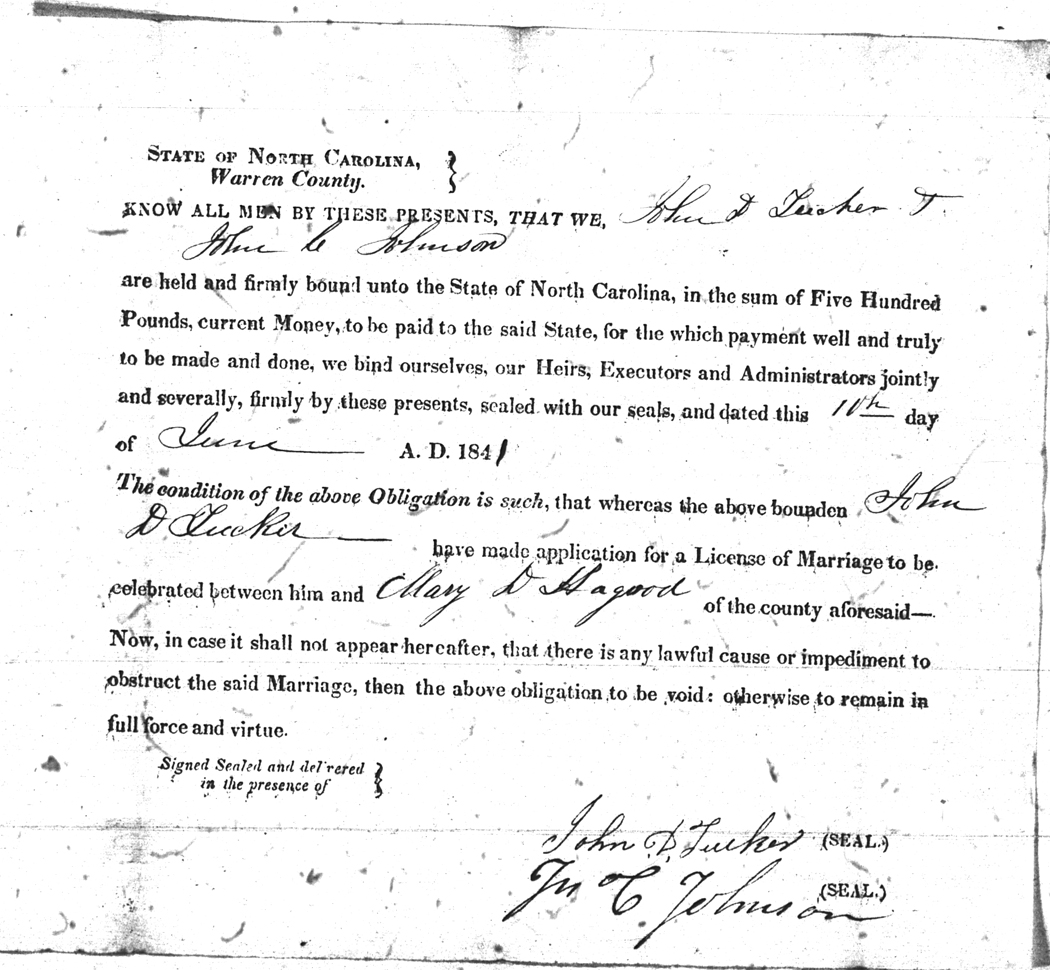 STATE OF NORTH CAROLINA,
Warren County.
KNOW ALL MEN BY THESE PRESENTS, THAT WE, John D Tucker &
John C Johnson
are held and firmly bound unto the State of North Carolina, in the sum of Five Hundred
Pounds, current Money, to be paid to the said State, for the which payment well and truly
to be made and done, we bind ourselves, our Heirs, Executors and Administrators jointly
and severally, firmly by these presents, sealed with our seals, and dated this 10th day
of June A. D. 1841
The condition of the above Obligation is such, that whereas the above bounden John
D Tucker have made application for a License of Marriage to be
celebrated between him and Mary D Hagood of the county aforesaid—
Now, in case it shall not appear hereafter, that there is any lawful cause or impediment to
obstruct the said Marriage, then the above obligation to be void: otherwise to remain in
full force and virtue.
Signed Sealed and delivered
in the presence of
John D. Tucker (SEAL.)
Jn C Johnson (SEAL.)